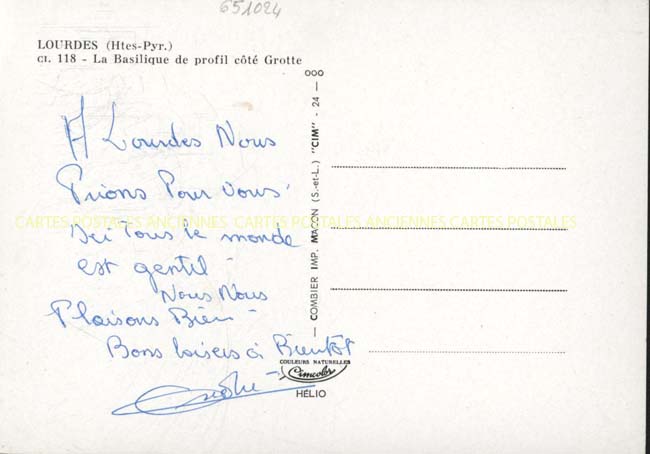 651024
LOURDES (Htes-Pyr.)
CI. 118 - La Basilique de profil côté Grotte
A Lourdes Nous
Prions Pour vous
Ici Tous le monde
est gentil -
Nous Nous
Plaisons Bien -
Bons baisers à Bientôt
COMBIER IMP. MACON (S.-et-L.) "CIM" - 24 - 000
CARTES POSTALES ANCIENNES CARTES POSTALES ANCIENNES CARTES POSTALES
COULEURS NATURELLES
Cimcolor
HÉLIO